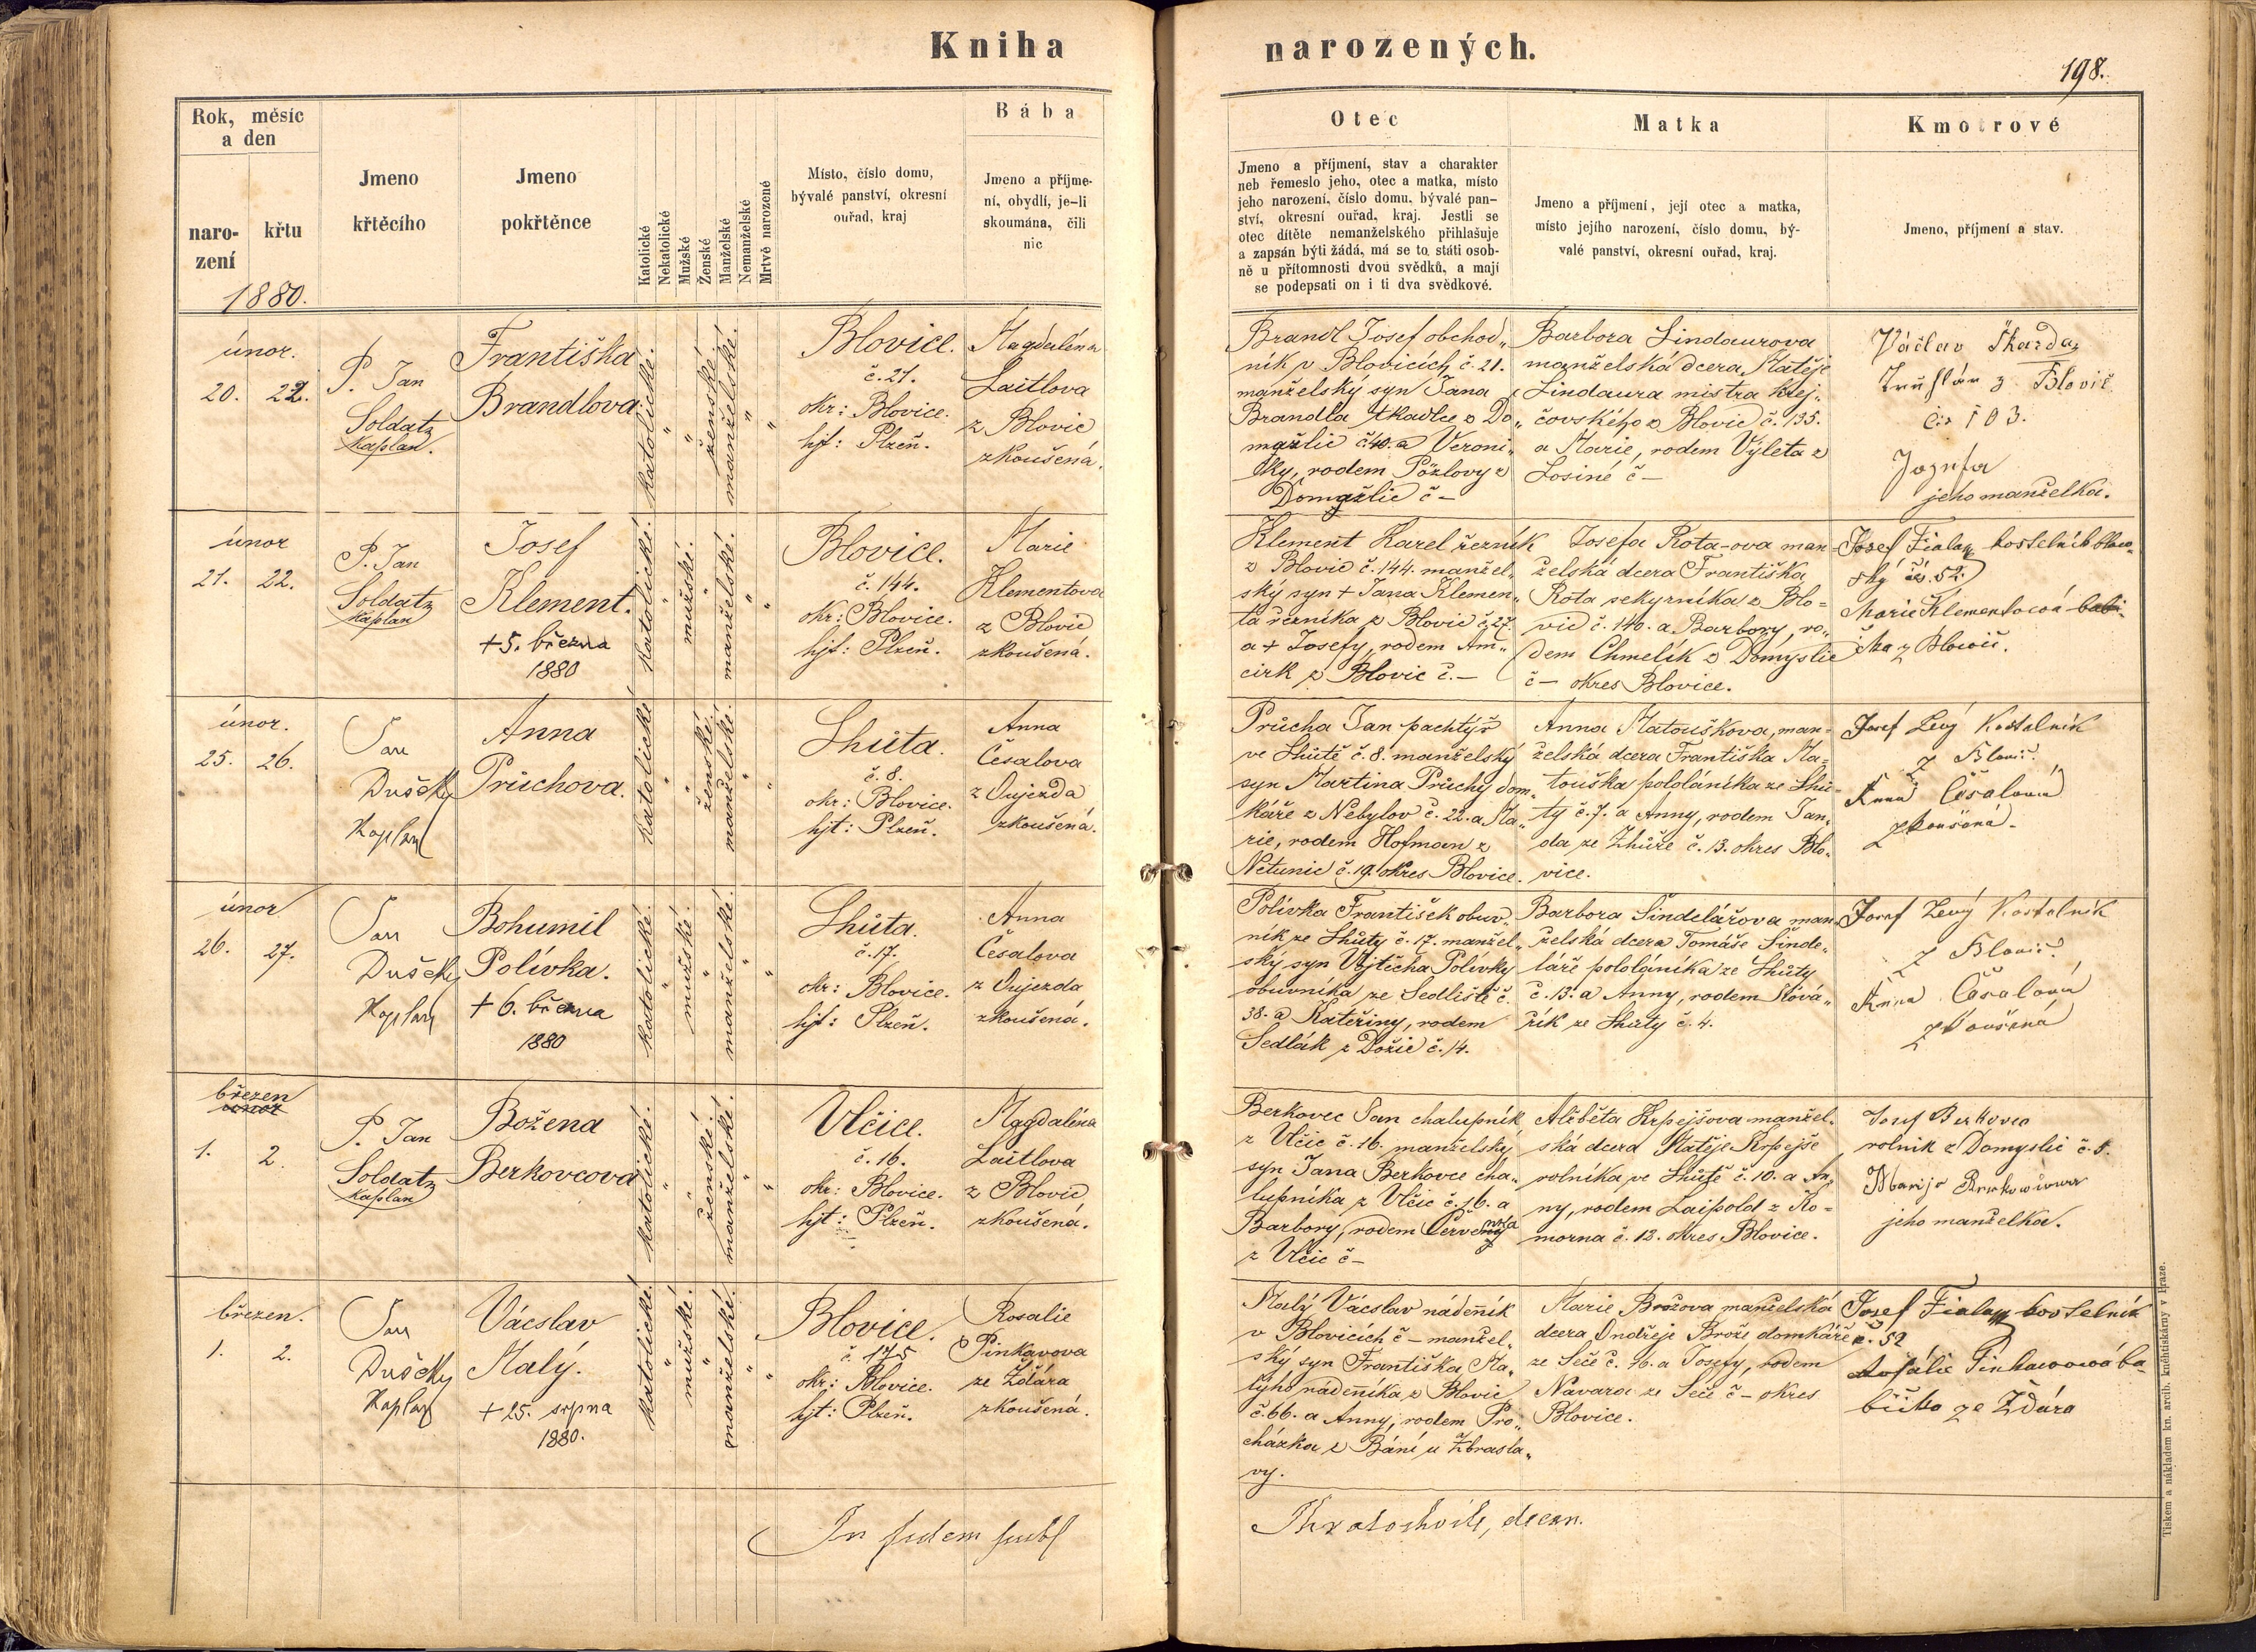 Kniha
narozených.
198.
Rok, měsíc
a den
naro-
zení
křtu
1880.
Jmeno
křtěcího
Jmeno
pokřtěnce
Katolické
Nekatolické
Mužské
Ženské
Manželské
Nemanželské
Mrtvě narozené
Místo, číslo domu,
bývalé panství, okresní
ouřad, kraj
Bába
Jmeno a příjme-
ní, obydlí, je-li
skoumána, čili
nic
Otec
Jmeno a příjmení, stav a charakter
neb řemeslo jeho, otec a matka, místo
jeho narození, číslo domu, bývalé pan-
ství, okresní ouřad, kraj. Jestli se
otec dítěte nemanželského přihlašuje
a zapsán býti žádá, má se to státi osob-
ně u přítomnosti dvou svědků, a mají
se podepsati on i ti dva svědkové.
Matka
Jmeno a příjmení, její otec a matka,
místo jejího narození, číslo domu, bý-
valé panství, okresní ouřad, kraj.
Kmotrové
Jmeno, příjmení a stav.
únor.
20. 22.
P. Jan
Soldatz
Kaplan.
Františka
Brandlova
katolické.
"
"
ženské.
manželské.
"
"
Blovice.
č. 21.
okr: Blovice.
hjt: Plzeň.
Magdalena
Laitlova
z Blovic
zkoušená.
Brandl Josef obchod„
ník v Blovicích č. 21.
manželský syn Jana
Brandla tkadlce z Do„
mažlic č. 40. a Veroni„
ky, rodem Pözlovy z
Domažlic č –
Barbora Lindaurova
manželská dcera Matěje
Lindaura mistra krej„
čovského z Blovic č. 135.
a Marie, rodem Výleta z
Losiné č –
Václav Škarda
Truhlář z Blovic
č: 103.
Jozefa
jeho manželka.
únor
21. 22.
P. Jan
Soldatz
Kaplan
Josef
Klement.
+ 5. března
1880
katolické.
"
mužské.
"
manželské.
"
"
Blovice.
č. 144.
okr: Blovice.
hjt: Plzeň.
Marie
Klementova
z Blovic
zkoušená.
Klement Karel řezník
z Blovic č. 144. manžel„
ský syn + Jana Klemen„
ta řezníka z Blovic č. 27.
a + Josefy, rodem Am„
cirk z Blovic č. –
Josefa Rota-ova man„
želská dcera Františka
Rota sekyrníka z Blo=
vic č. 140. a Barbory, ro„
dem Chmelík z Domyslic
č – okres Blovice.
Josef Fiala kostelník blovi-
ský čís. 52.
Marie Klementová babi-
čka z Blovic.
únor.
25. 26.
Jan
Dušek
Kaplan
Anna
Průchova.
katolické
"
"
ženské.
manželské.
"
"
Lhůta.
č. 8.
okr: Blovice.
hjt: Plzeň.
Anna
Česalova
z Oujezda
zkoušená.
Průcha Jan pachtýř
ve Lhůtě č. 8. manželský
syn Martina Průchy dom„
káře z Nebylov č. 22. a Ma„
rie, rodem Hofman z
Netunic č. 19. okres Blovice.
Anna Matouškova, man=
želská dcera Františka Ma=
touška pololáníka ze Lhů=
ty č. 7. a Anny, rodem Jan„
da ze Zhůře č. 13. okres Blo„
vice.
Josef Levý Kostelník
z Blovic.
Anna Česalová
zkoušená.
únor
26. 27.
Jan
Dušek
Kaplan
Bohumil
Polívka.
+ 6. března
1880
katolické.
"
mužské.
"
manželské.
"
"
Lhůta.
č. 17.
okr: Blovice.
hjt: Plzeň.
Anna
Česalova
z Oujezda
zkoušená.
Polívka František obuv„
ník ze Lhůty č. 17. manžel„
ský syn Vojtěcha Polívky
obuvníka ze Sedliště č.
38. a Kateřiny, rodem
Sedlák z Dožic č. 14.
Barbora Šindelářova man„
želská dcera Tomáše Šinde„
láře pololáníka ze Lhůty
č. 13. a Anny, rodem Slová„
řík ze Lhůty č. 4.
Josef Levý Kostelník
z Blovic.
Anna Česalová
zkoušená
březen
únor
1. 2.
P. Jan
Soldatz
Kaplan
Božena
Berkovcová
katolické.
"
"
ženské.
manželské.
"
"
Vlčice.
č. 16.
okr: Blovice.
hjt: Plzeň.
Magdaléna
Laitlova
z Blovic
zkoušená.
Berkovec Jan chalupník
z Vlčic č. 16. manželský
syn Jana Berkovce cha„
lupníka z Vlčic č. 16. a
Barbory, rodem Červený
z Vlčic č –
Alžběta Krpejšova manžel„
ská dcera Matěje Krpejše
rolníka ve Lhůtě č. 10. a An„
ny, rodem Laipold z Ko=
morna č. 13. okres Blovice.
Josef Berkovec
rolník z Domyslic č. 5.
Marije Berkowcowa
jeho manželka.
březen.
1. 2.
Jan
Dušek
Kaplan
Vácslav
Malý.
+ 25. srpna
1880.
katolické.
"
mužské.
"
manželské.
"
"
Blovice.
č. 175
okr: Blovice.
hjt: Plzeň.
Rosalie
Pinkavova
ze Ždára
zkoušená.
Malý Vácslav nádenník
v Blovicích č – manžel„
ský syn Františka Ma„
lýho nádenníka z Blovic
č. 66. a Anny, rodem Pro„
cházka z Bání u Zbrasla„
vy.
Marie Brožova manželská
dcera Ondřeje Brože domkáře
ze Seče č. 16. a Josefy, rodem
Navara ze Seče č – okres
Blovice.
Josef Fiala kostelník
č. 52
Rosálie Pinkawowá ba-
bička ze Ždára
In fidem publ
děkan.
Tiskem a nákladem kn. arcib. knihtiskárny v Praze.